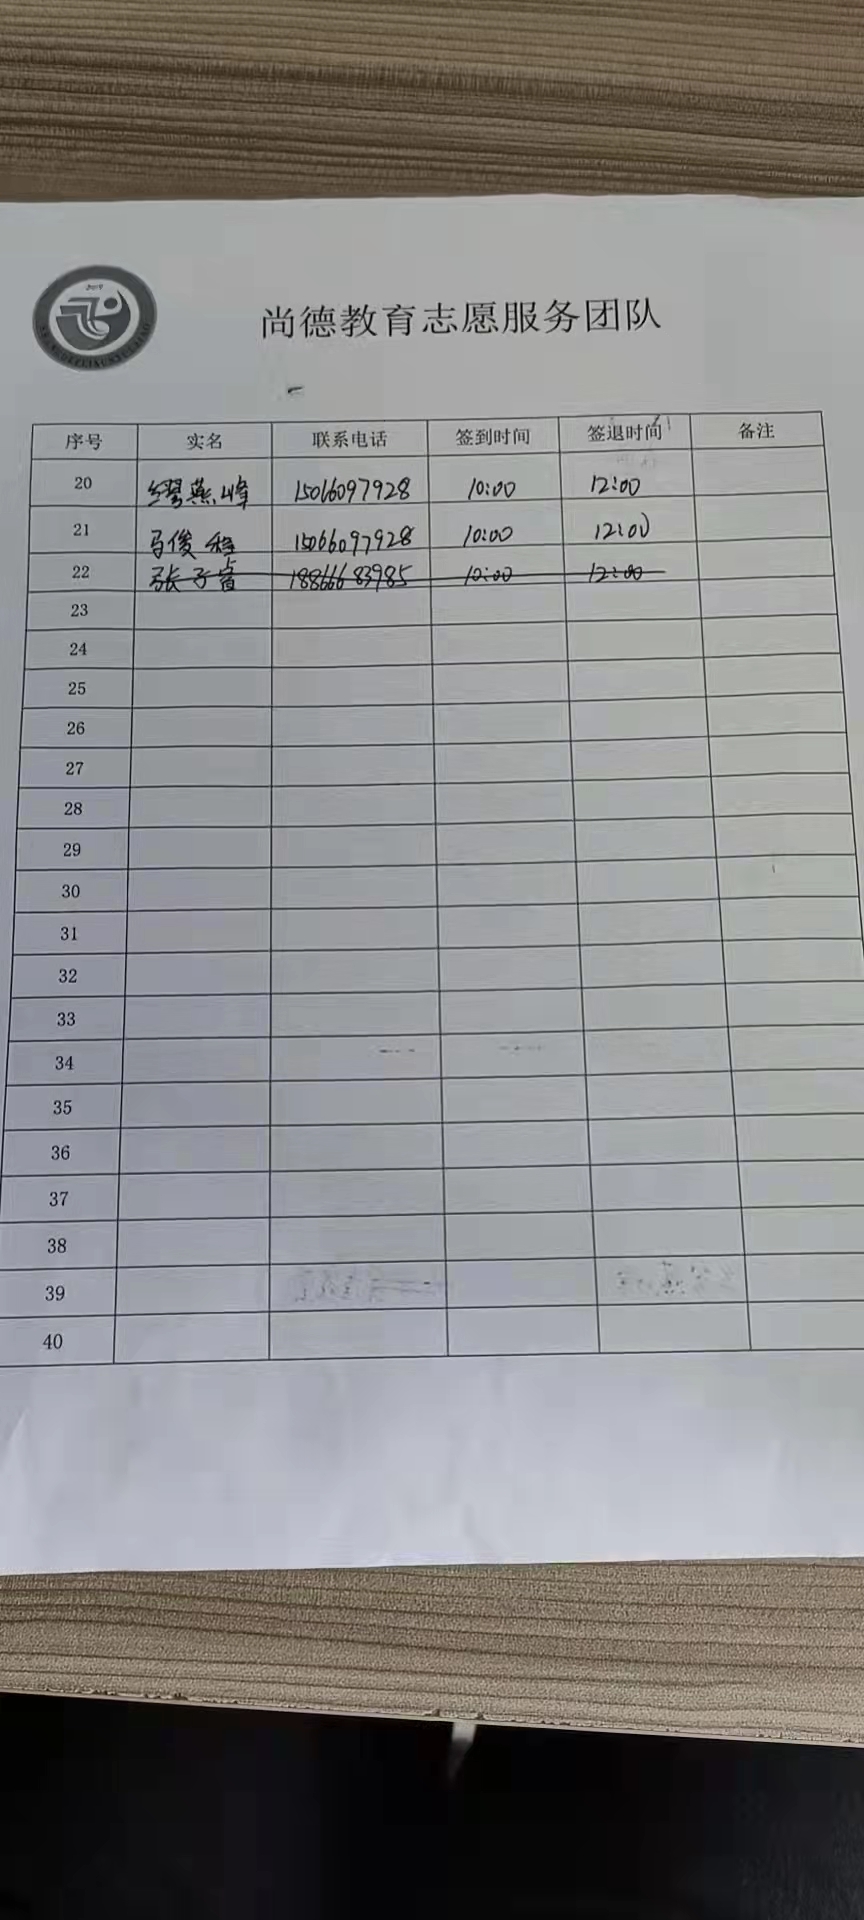 尚德教育志愿服务团队
序号 实名 联系电话 签到时间 签退时间 备注
20 缪燕峰 15066097928 10:00 12:00
21 马俊程 15066097928 10:00 12:00
22 张子睿 18866683985 10:00 12:00
23
24
25
26
27
28
29
30
31
32
33
34
35
36
37
38
39
40